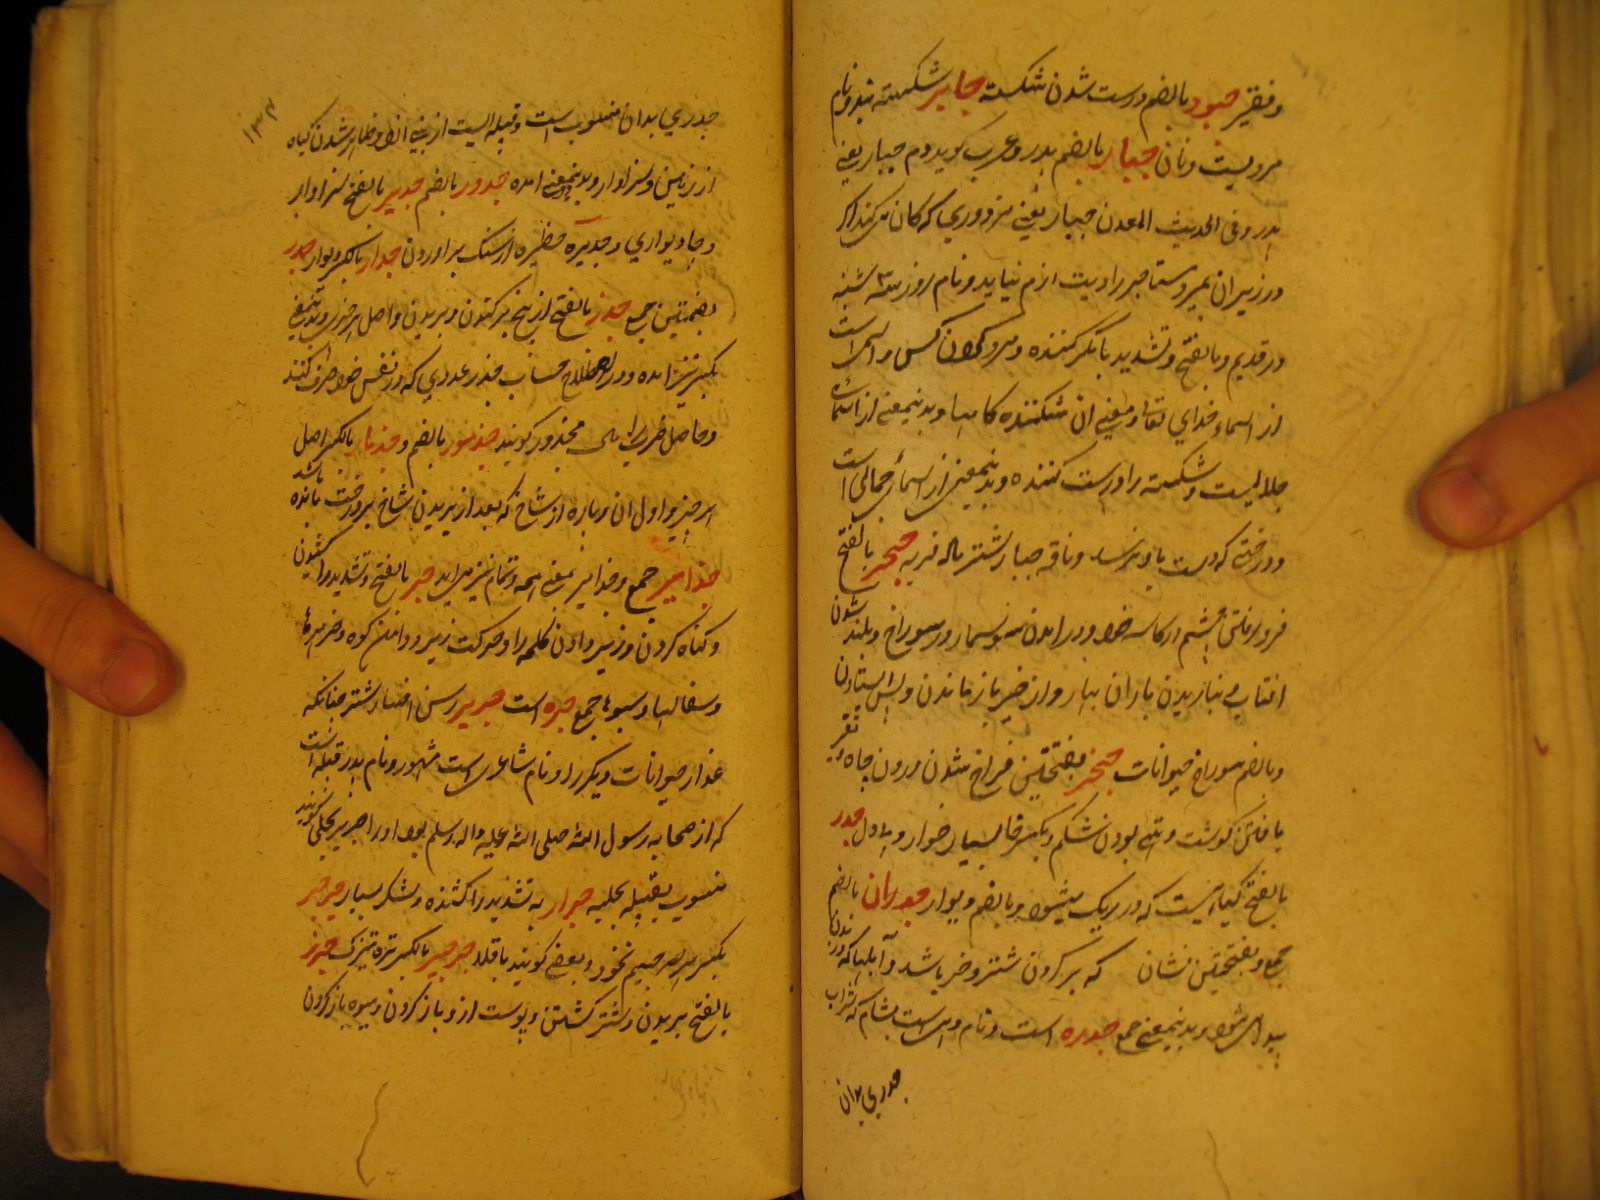 و فقیر جبور بالضم درست شدن شکسته جابر شکسته بند و نام
مردیست و نان جبار بالضم هدر و عرب گویند دم جبار یعنی
هدر و فی الحدیث المعدن جبار یعنی مزدوری که کان می‌کند اگر
در زیر ان بمیرد مستاجر را دیت لازم نیاید و نام روز سه شنبه
در قدیم و بالفتح و تشدید با تکبر کننده و سرکش و است
از اسماء خدای تعالی و معنی ان شکننده کامها و بدینمعنی از اسماء
جلالیست و شکسته را درست کننده و بدینمعنی از اسماء جمالی است
و درختی که دست باو نرسد و ناقه جبار شتر ماده فربه جحر بالفتح
فرو رفتن چشم در کاسه خود و در امدن سوسمار در سوراخ و بلند شدن
افتاب و نباریدن باران بهار و از خیر باز ماندن و پس ایستادن
و بالضم سوراخ حیوانات جخر بفتحتین فراخ شدن درون چاه و تغیر
یافتن گوشت و تهی بودن شکم و بکسر خا بسیار خوار و بد دل جدر
بالفتح گیاهیست که در ریک میشود و بالضم دیوار جدران بالضم
جمع و بفتحتین نشان که بر گردن شتر و خر باشد و آبلها که در بدن
پیدا می شود و بدینمعنی جمع جدره است و نام دهیست بشام که شراب
جدری بدان
۱۳۴
جدری بدان منسوبست و قبیله ایست از بنی ازد و ظاهر شدن گیاه
از زمین و سزاوار و بدینمعنی امده جدور بالضم جدیر بالفتح سزاوار
و جای دیواری و جدیره حظیره از سنک براوردن جدار بالکسر دیوار جدر
بضمتین جمع جذر بالفتح از بیخ بر کندن و بریدن و اصل هر چیز و بدینمعنی
بکسر نیز امده و در اصطلاح حساب جذر عددی که در نفس خود ضرب کنند
و حاصل ضرب را مجذور گویند جذمور بالضم و جذمار بالکسر اصل
هر چیز و اول ان و پاره از شاخ که بعد از بریدن شاخ بر درخت مانده باشد
جذامیر جمع و جذامیر بمعنی همه و تمام نیز می‌اید جر بالفتح و تشدید را کشیدن
و گناه کردن و زیر دادن کلمه را و حرکت زیر و دامن کوه و
و سفالها و سبوها جمع جره است جریر رسن افسار شتر چنانکه
عذار حیوانات دیگر را و نام شاعریست مشهور و نام پدر قبله است
که از صحابه رسول الله صلی الله علیه و اله و سلم بود او را جریر بجلی گویند
منسوب بقبیله بجلیه جرار به تشدید را کشنده و لشکر بسیار جرجر
بکسر هر دو جیم نخود و بعضی گویند باقلا جرجیر بالکسر تره تیزک جزر
بالفتح بریدن و شتر کشتن و پوست ازو باز کردن و میوه باز کردن